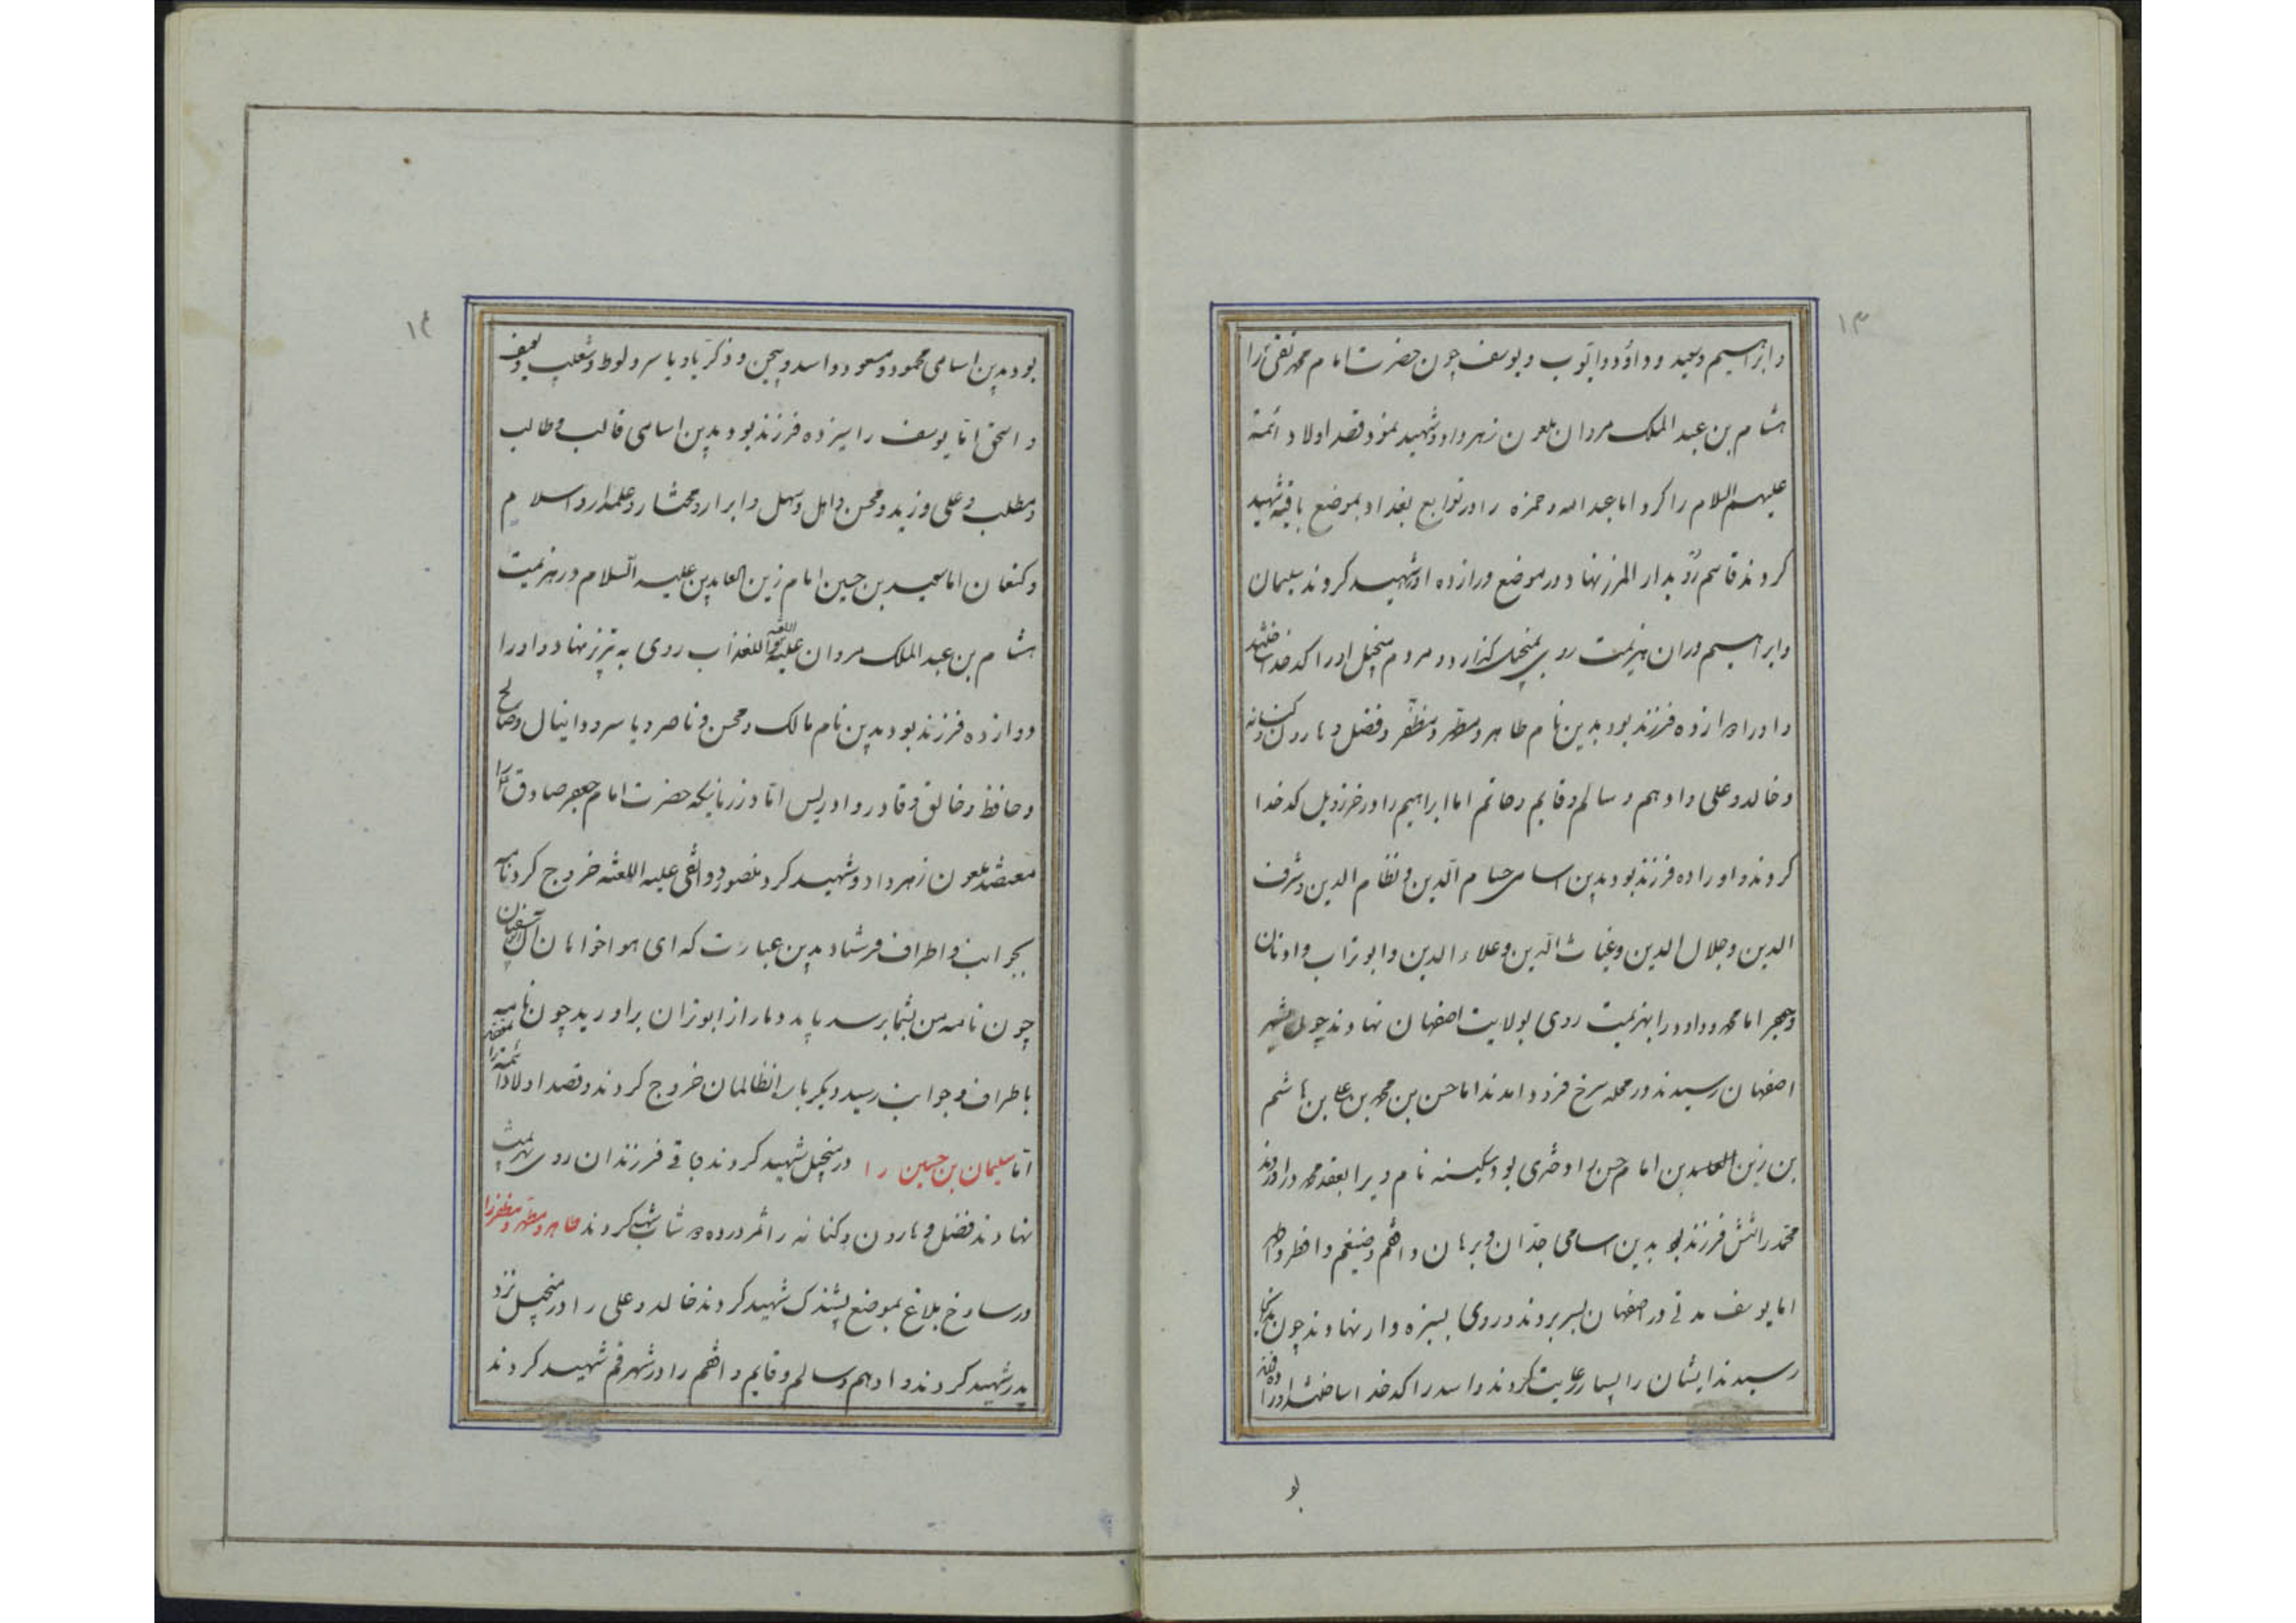 ۱۳
وابراهیم وسعید وداؤد وایوب ویوسف چون حضرت امام محمد تقی را
هشام بن عبد الملک مروان ملعون زهر داد وشهید نمود قصد اولاد ائمّه
علیهم السلام را کرد اما عبدالله وحمزه را در توابع بغداد بموضع باقیه شهید
کردند قاسم رو بدار المرز نهاد ودر موضع ورازده او را شهید کردند سلیمان
وابراهیم دران هزیمت روی بمنجیل گذارد ومردم منجیل او را کدخدا ساختند
واورا دوازده فرزند بود بدین نام طاهر ومطهر ومظفر وفضل وهارون وکنانه
وخالد وعلی وادهم وسالم وقایم وحاتم اما ابراهیم را در خرزویل کدخدا
کردند واورا ده فرزند بود بدین اسامی حسام الدین ونظام الدین وشرف
الدین وجلال الدین وغیاث الدین وعلاء الدین وابوتراب
اما محمد وداود را بهزیمت روی بولایت اصفهان نهادند چون بشهر
اصفهان رسیدند در محله سرخ فرود امدند اما حسن بن محمد بن علی بن هاشم
بن زین العابدین بن امام حسن را دختری بود سکینه نام ویرا بعقد محمد دراوردند
محمد را شش فرزند بود بدین اسامی وبرهان وضیغم
اما یوسف مدتی در اصفهان بسر بردند وروی بسبزه وار نهادند چون بدانجا
رسیدند ایشان را بسیار رعایت کردند واسد را کدخدا ساختند اورا ده فرزند
بو
۱۴
بود بدین اسامی محمود ومسعود واسد وبیجن وذکریا ویاسر ولوط وشعیب
واسحق اما یوسف را سیزده فرزند بود بدین اسامی غالب وطالب
ومطلب وعلی وزید ومحسن واهل وسهل وابرار ومختار وعلمدار واسلام
وکنعان اما سعید بن حسین امام زین العابدین علیه السلام در هزیمت
هشام بن عبد الملک مروان علیه اللعنة والعذاب روی به تبریز نهاد واورا
دوازده فرزند بود بدین نام مالک ومحسن وناصر ویاسر ودانیال وصالح
وحافظ وخالق وقادر وادریس اما در زمانیکه حضرت امام جعفر صادق را
معتضد ملعون زهر داد وشهید کرد منصور دوانقی علیه اللعنه خروج کرد نامه
بجوانب واطراف فرستاد بدین عبارت که ای هواخواهان آل سفیان
چون نامه من بشما برسد باید دمار از ابوتران براورید چون نامه
باطراف وجوانب رسید دیگر بار انظالمان خروج کردند وقصد اولاد ائمه را
اما سلیمان بن حسین را در منجیل شهید کردند باقی فرزندان روی بهزیمت
نهادند فضل وهارون وکنانه را شهید کردند طاهر ومطهر ومظفر را
در ساوخ بلاغ بموضع پشندک شهید کردند خالد وعلی را در منجیل نزد
پدر شهید کردند وادهم وسالم وقایم را در شهر قم شهید کردند